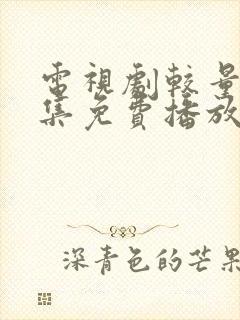 電視劇較量
集免費播放
深青色的芒果